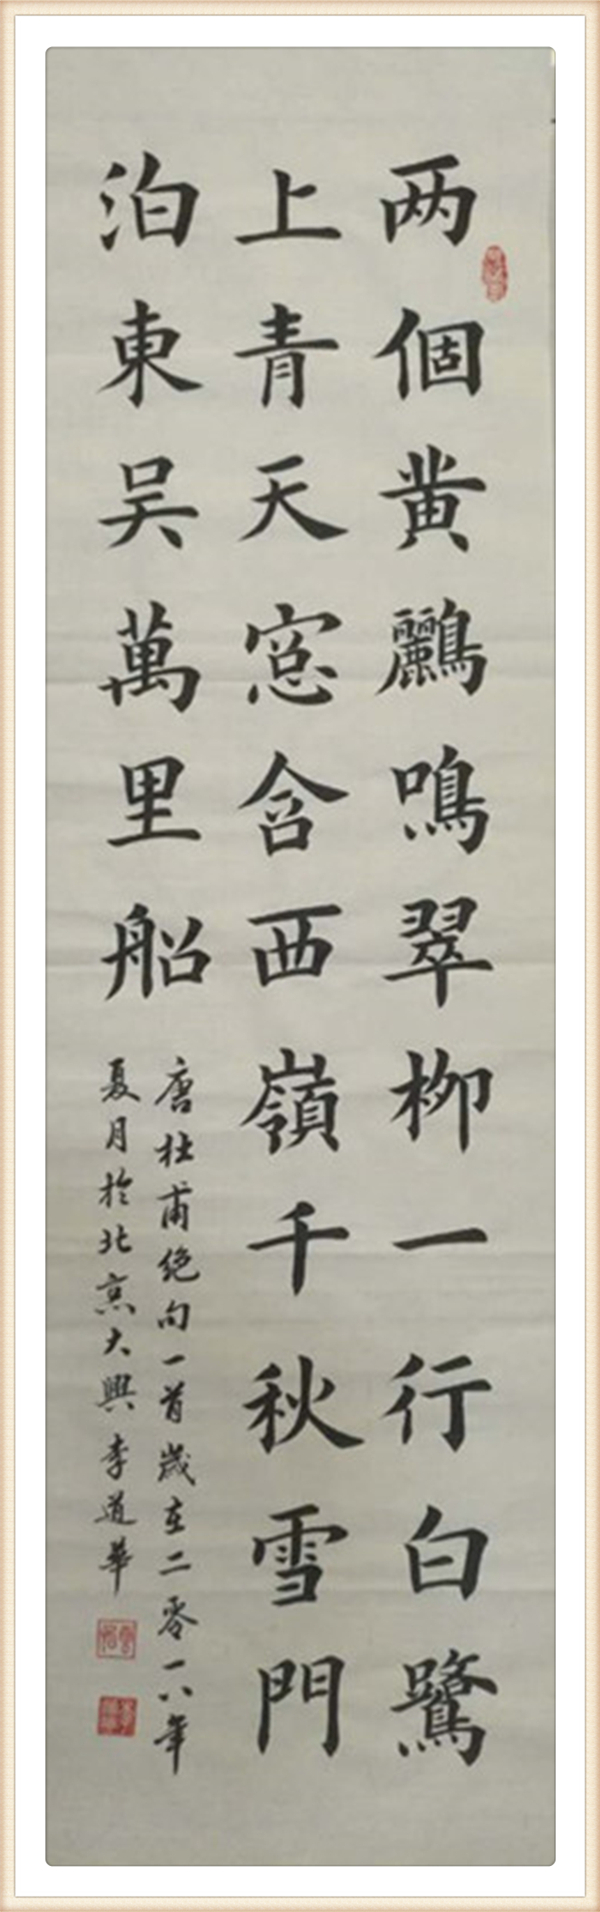 两個黄鸝鳴翠柳一行白鷺
上青天窓含西嶺千秋雪門
泊東吴萬里船
唐杜甫绝句一首歲在二零一八年
夏月於北京大興李道華